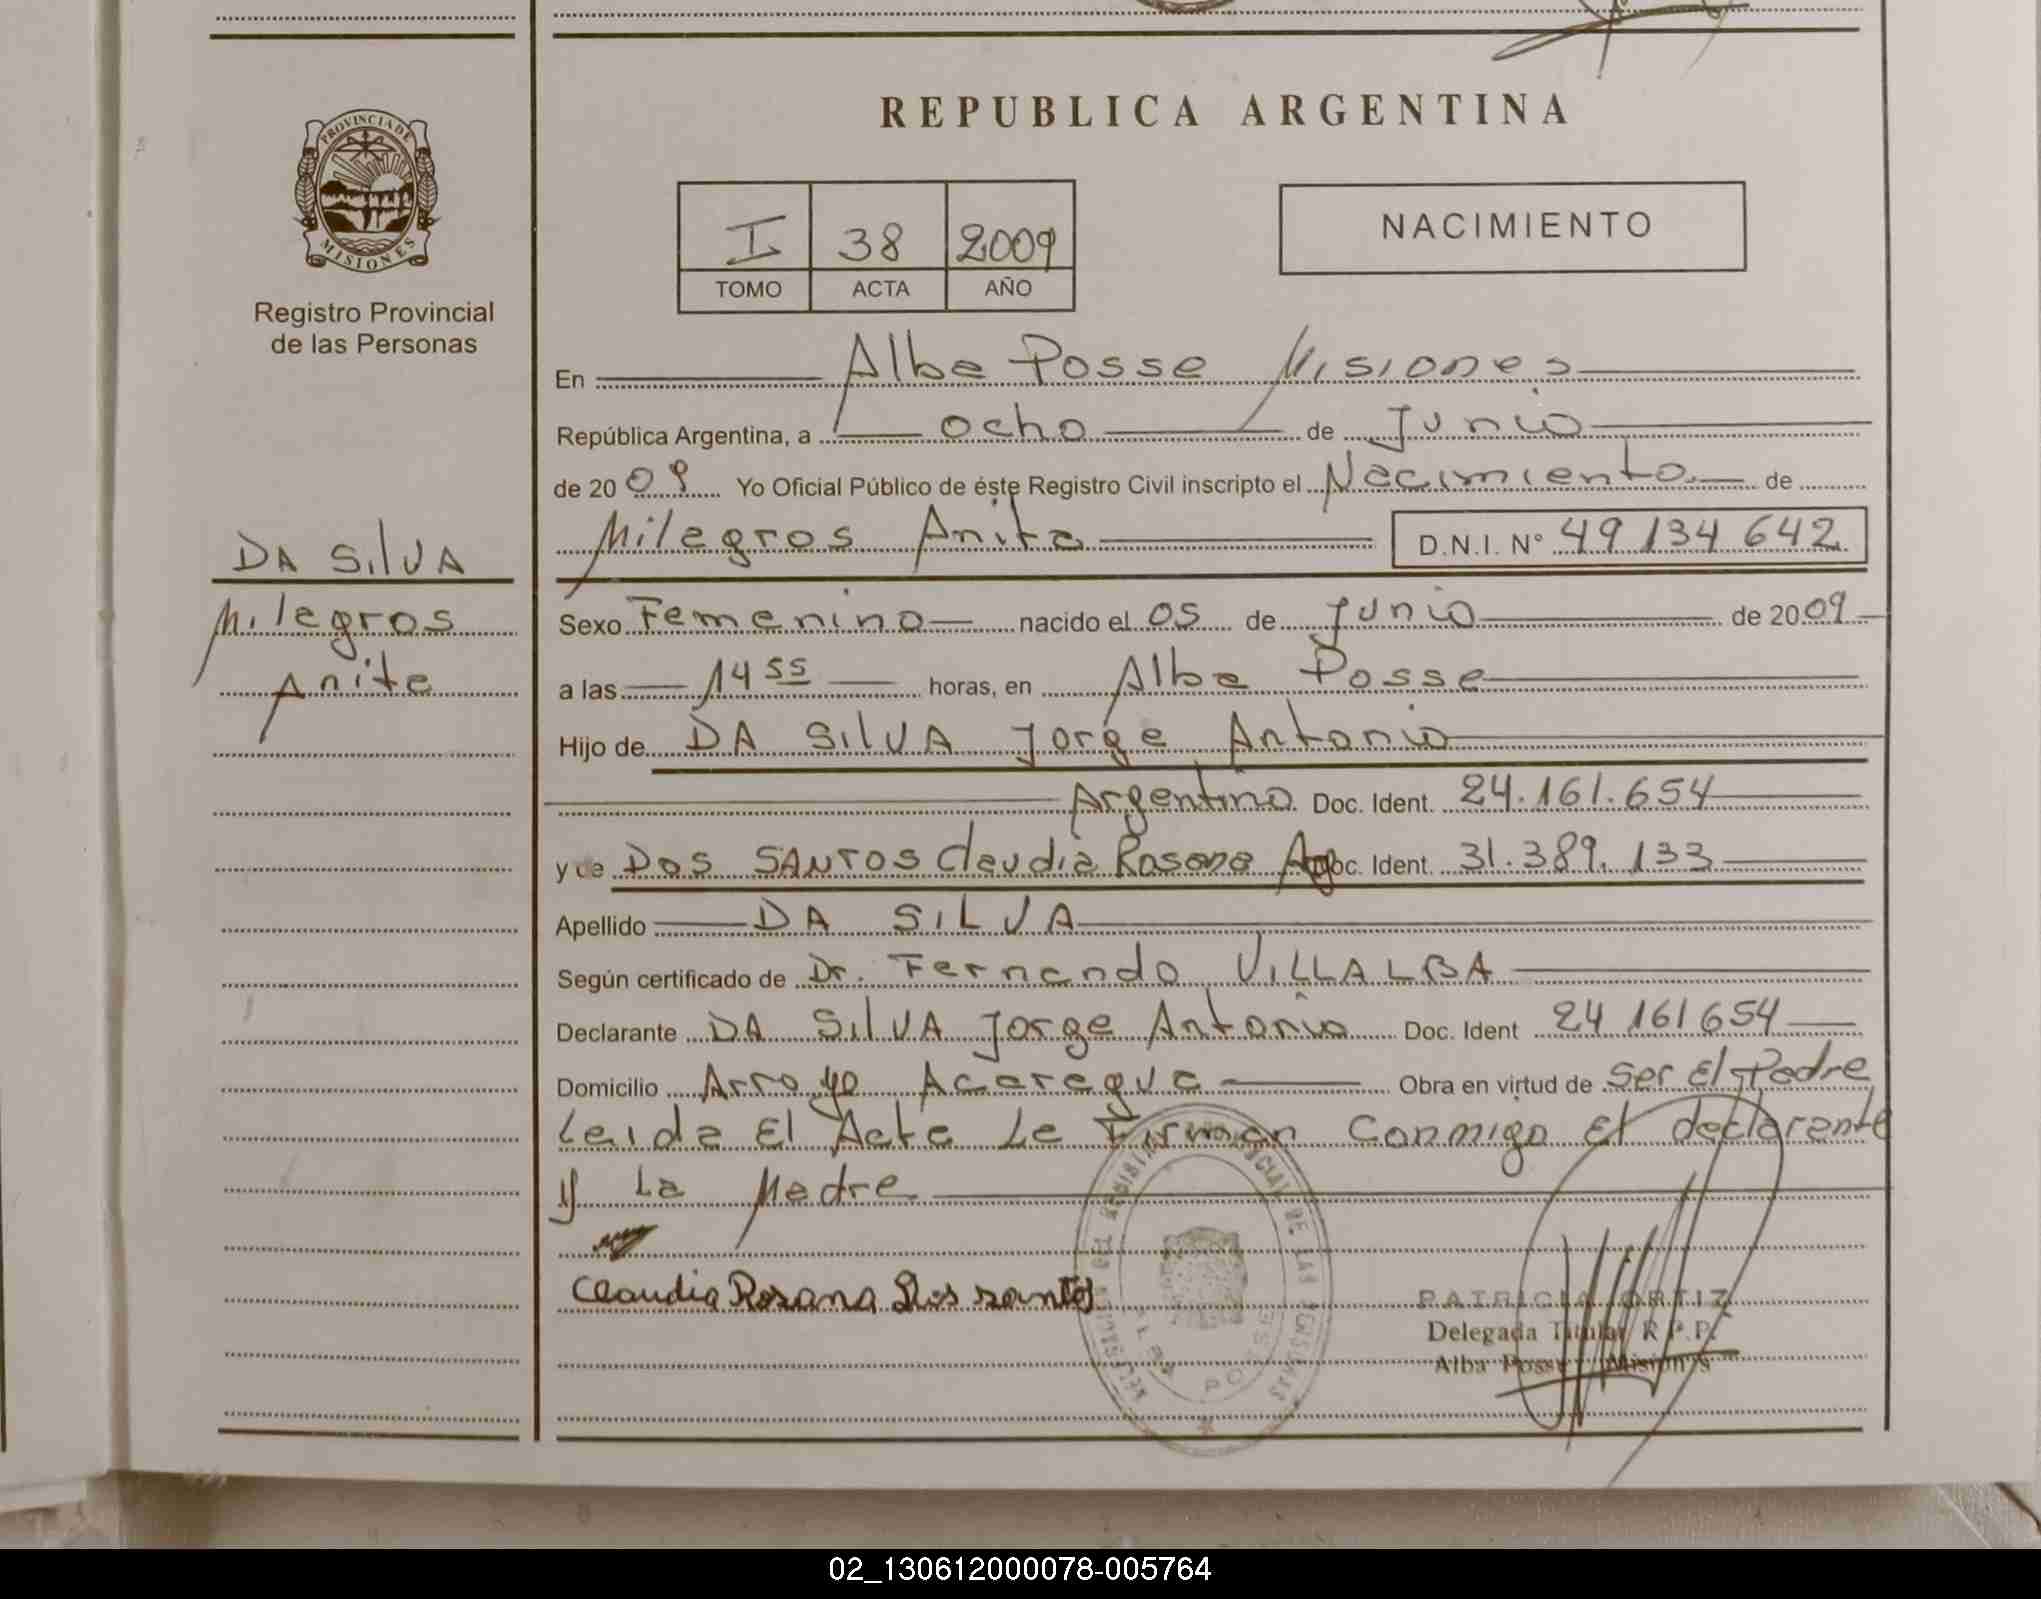 REPUBLICA ARGENTINA
PROVINCIA DE MISIONES
Registro Provincial
de las Personas
I 38 2009
TOMO ACTA AÑO
NACIMIENTO
En Alba Posse Misiones
República Argentina, a ocho de Junio
de 2009 Yo Oficial Público de éste Registro Civil inscripto el Nacimiento de
Milagros Anita D.N.I. N° 49 134 642
DA SilVA
Milagros
Anita
Sexo Femenino nacido el 05 de Junio de 2009
a las 14 55 horas, en Alba Posse
Hijo de DA SilVA Jorge Antonio
Argentino Doc. Ident. 24.161.654
y de DOS SANTOS Claudia Rosana Arg Doc. Ident. 31.389.133
Apellido DA SILVA
Según certificado de Dr. Fernando VILLALBA
Declarante DA SilVA Jorge Antonio Doc. Ident 24 161 654
Domicilio Arroyo Acaragua Obra en virtud de Ser El Padre
Leida El Acta La Firman Conmigo El declarante
y La Madre
Claudia Rosana Dos santos
PATRICIA ORTIZ
Delegada Titular R.P.P.
Alba Posse - Misiones
ALBA POSSE
02_130612000078-005764